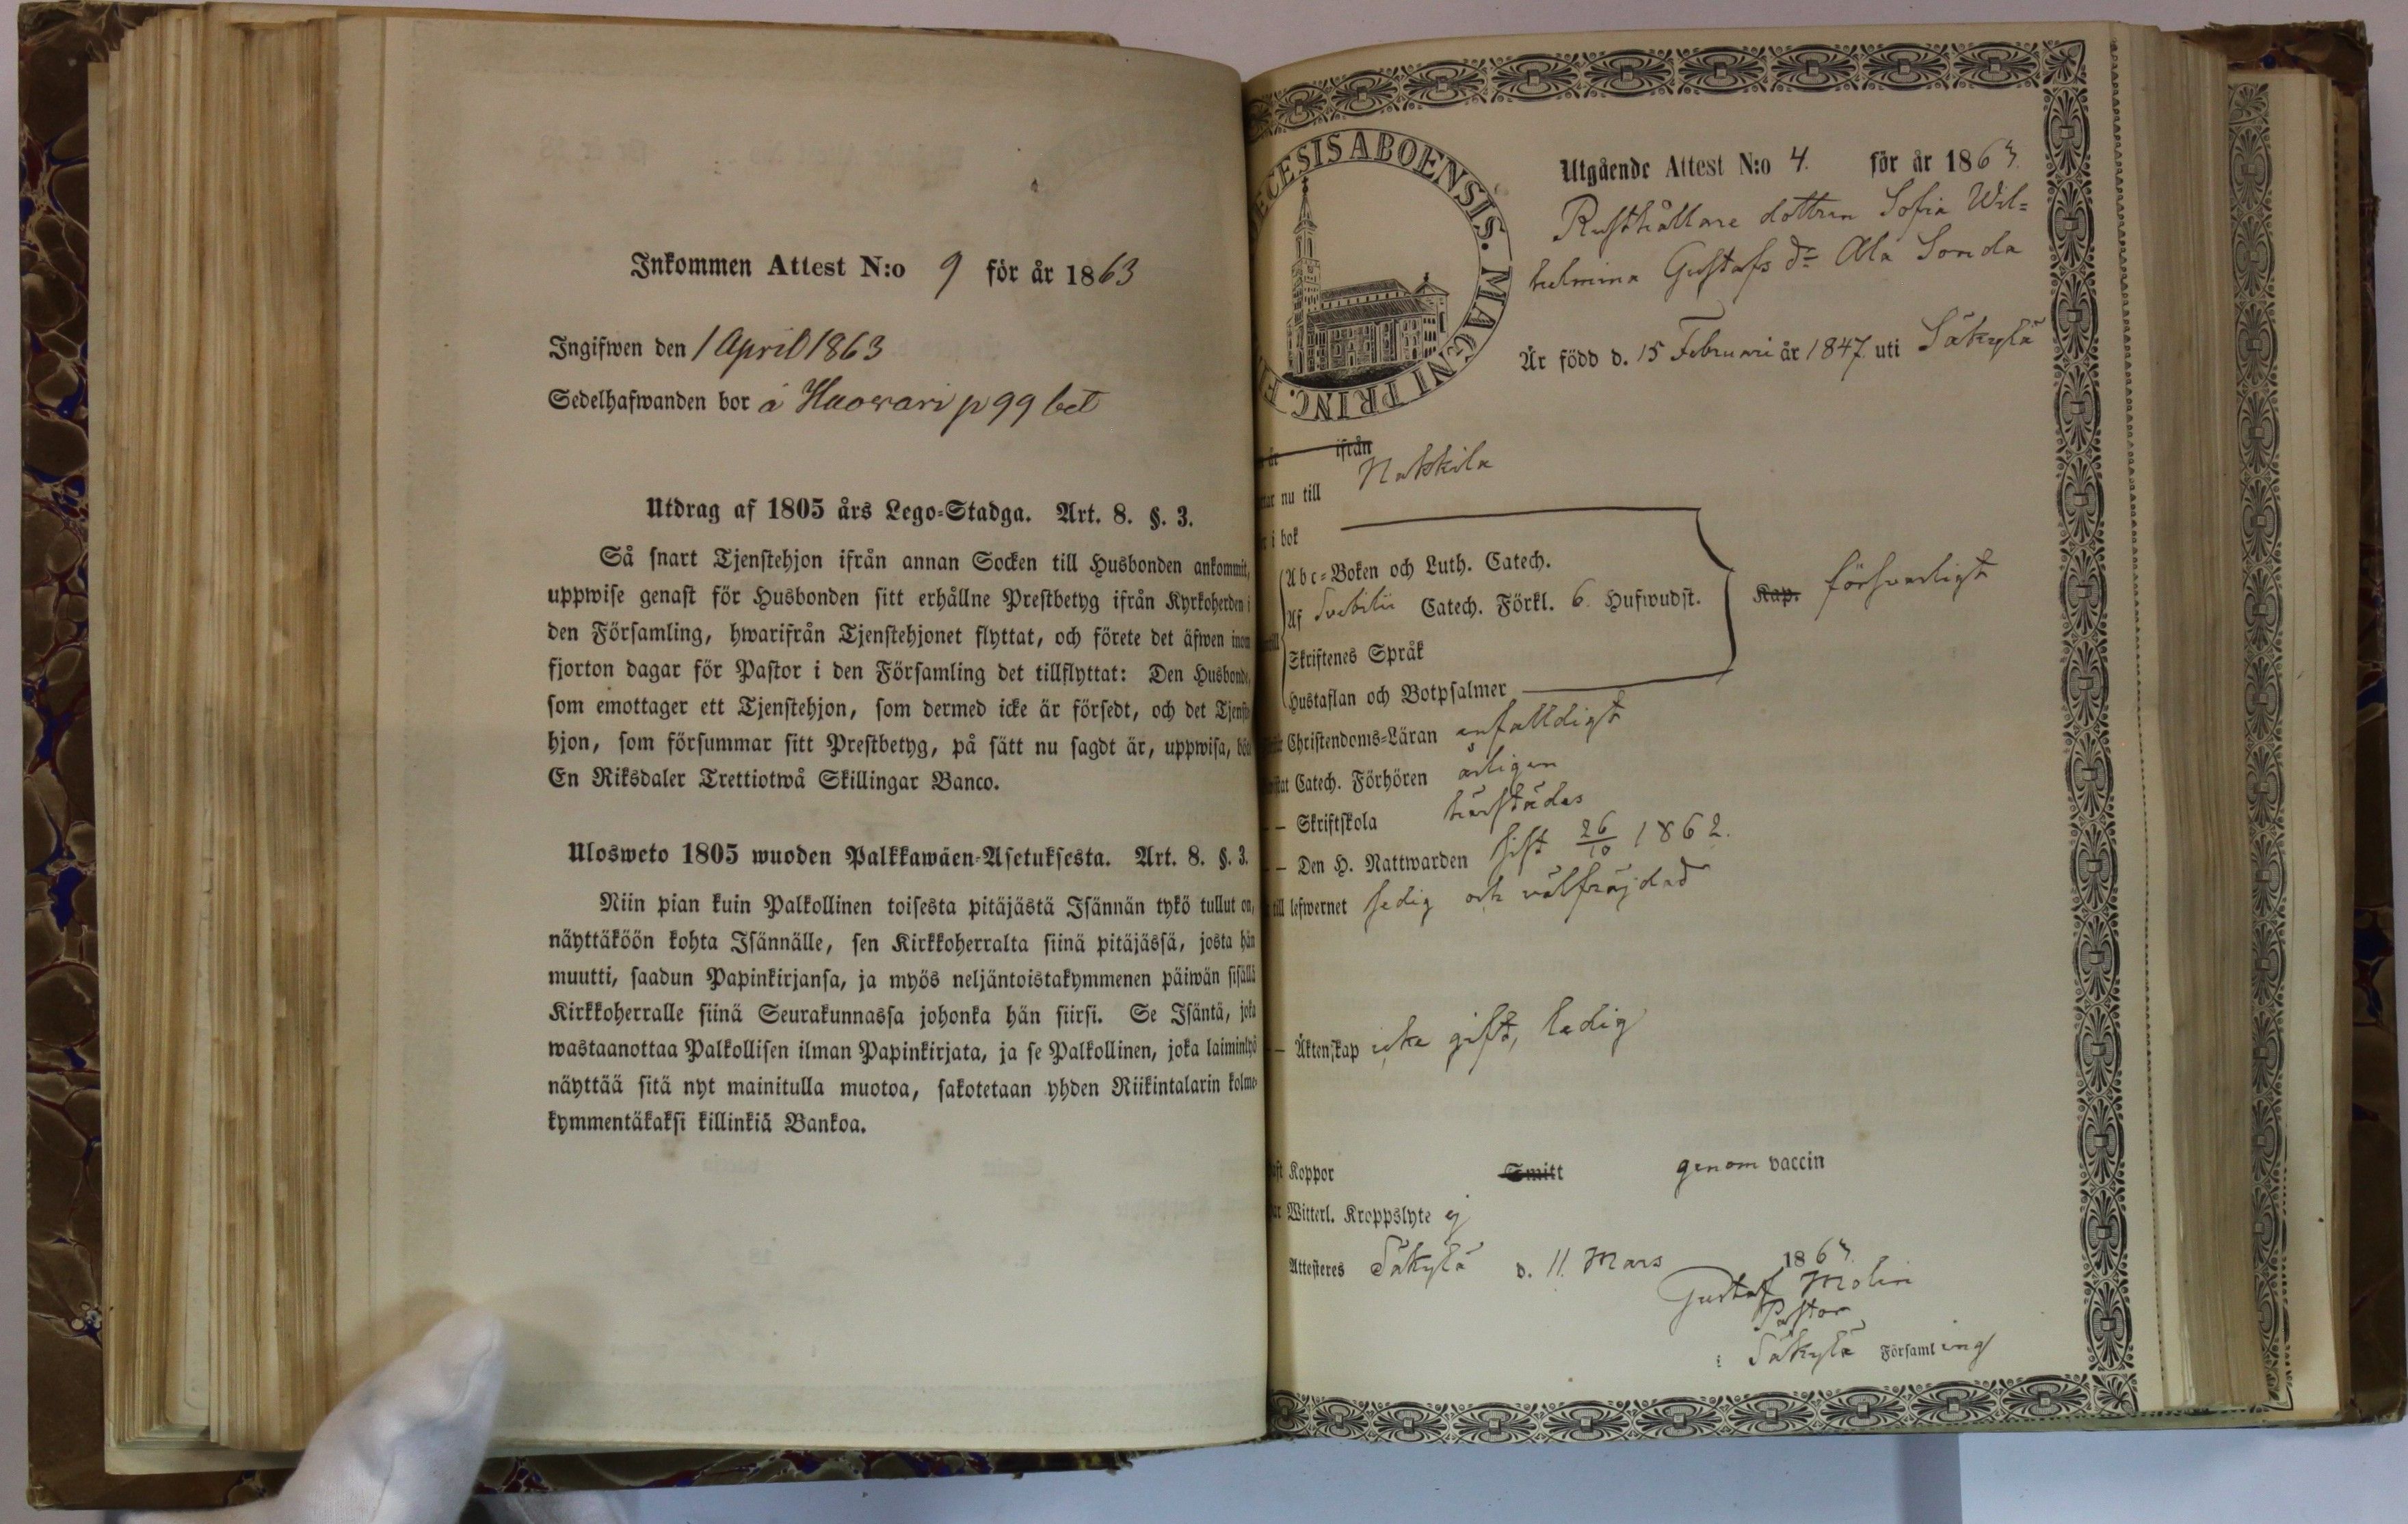 Inkommen Attest N:o 9 för år 1863
Ingifwen den 1 April 1863
Sedelhafwanden bor å Haowari p 99 bet
Utdrag af 1805 års Lego-Stadga. Art. 8. §. 3.
Så snart Tjenstehjon ifrån annan Socken till Husbonden ankommit,
uppwise genast för Husbonden sitt erhållne Prestbetyg ifrån Kyrkoherden i
den Församling, hwarifrån Tjenstehjonet flyttat, och förete det äfwen inom
fjorton dagar för Pastor i den Församling det tillflyttat: Den Husbonde,
som emottager ett Tjenstehjon, som dermed icke är försedt, och det Tjenste
hjon, som försummar sitt Prestbetyg, på sätt nu sagdt är, uppwisa, böte
En Riksdaler Trettiotwå Skillingar Banco.
Ulosweto 1805 wuoden Palkkawäen-Asetuksesta. Art. 8. §. 3.
Niin pian kuin Palkollinen toisesta pitäjästä Isännän tykö tullut on,
näyttäköön kohta Isännälle, sen Kirkkoherralta siinä pitäjässä, josta hän
muutti, saadun Papinkirjansa, ja myös neljäntoistakymmenen päiwän sisällä
Kirkkoherralle siinä Seurakunnassa johonka hän siirsi. Se Isäntä, joka
wastaanottaa Palkollisen ilman Papinkirjata, ja se Palkollinen, joka laiminlyö
näyttää sitä nyt mainitulla muotoa, sakotetaan yhden Riikintalarin kolme-
kymmentäkaksi killinkiä Bankoa.
ECESIS ABOENSIS. MAGNI PRINC. F
Utgående Attest N:o 4. för år 1863.
Rusthållare dottren Sofia Wil=
helmina Gustafs dr Ala Sonda
Är född d. 15 Februari år 1847. uti Säkylä
är ifrån
nu till Nakkila
i bok
Abc-Boken och Luth. Catech.
Af Svebilii Catech. Förkl. 6. Hufwudst. Kap. försvarligt
Skriftenes Språk
Hustaflan och Botpsalmer
Christendoms-Läran enfalldigt
Catech. Förhören årligen
– Skriftskola härstädes
– Den H. Nattwarden sist 26/10 1862.
till lefwernet sedig och välfräjdad
– Äktenskap icke gift, ledig
Koppor Smitt genom vaccin
Witterl. Kroppslyte ej
Attesteres Säkylä d. 11. Mars 1863.
Gustaf Molin
Pastor
i Säkylä Församling